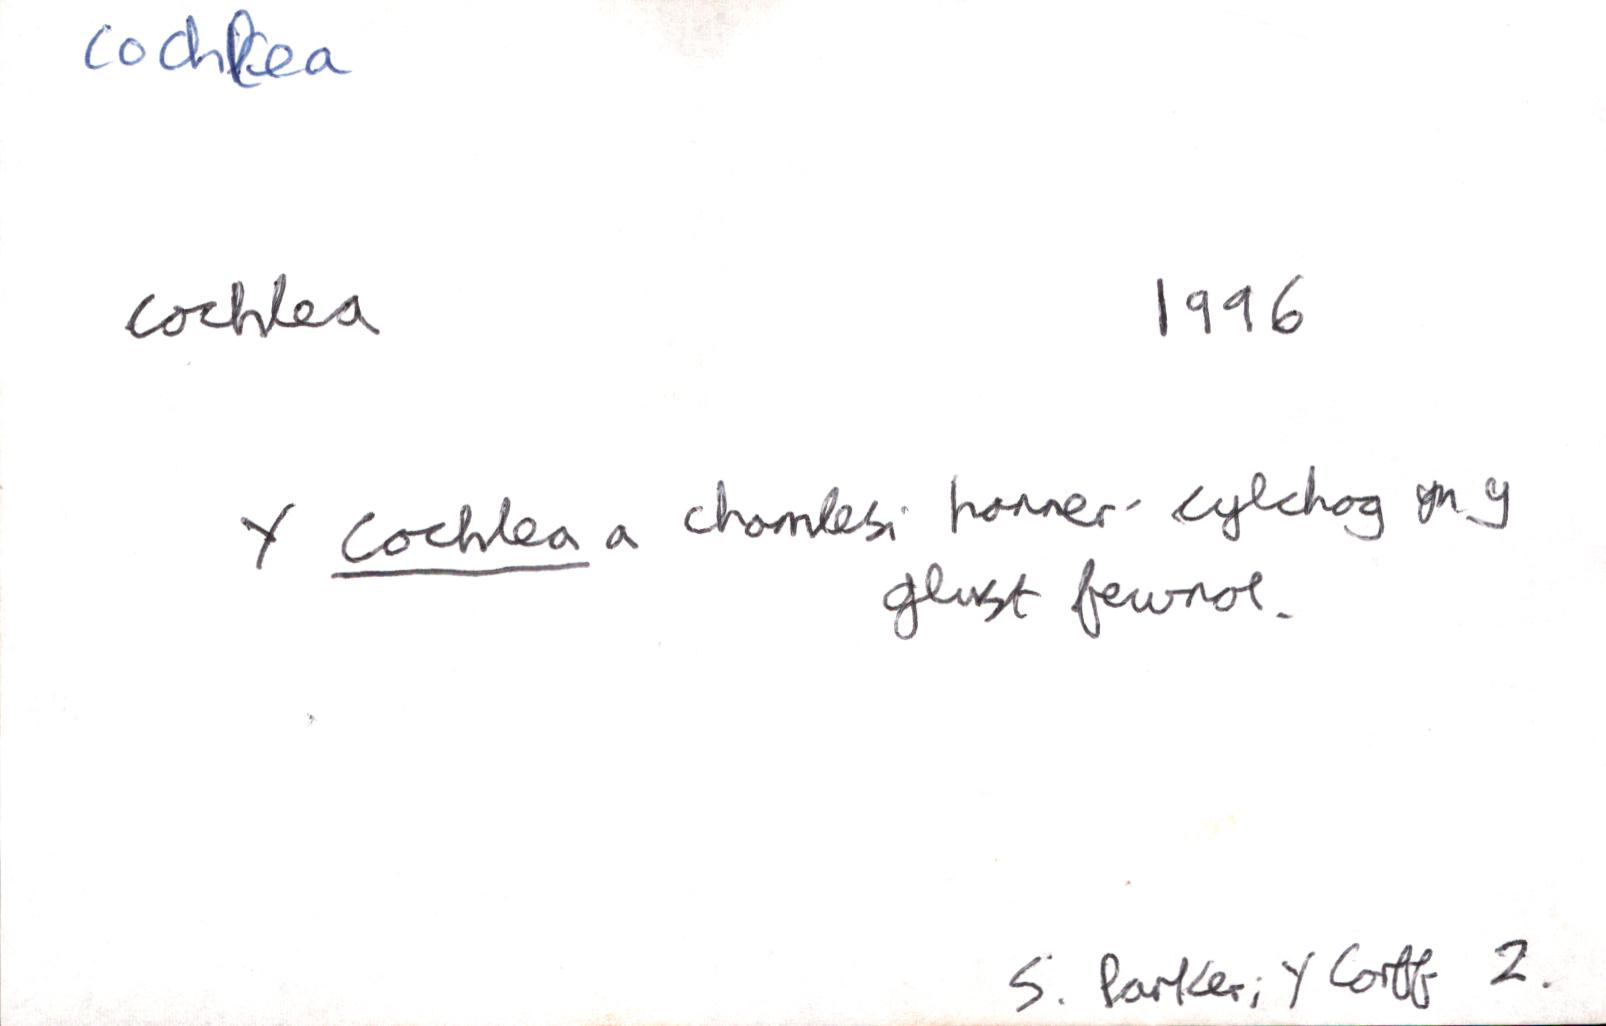 cochlea
cochlea 1996
Y cochlea a chamlesi hanner-cylchog yn y
glust fewnol.
S. Parker; Y Corff 2.